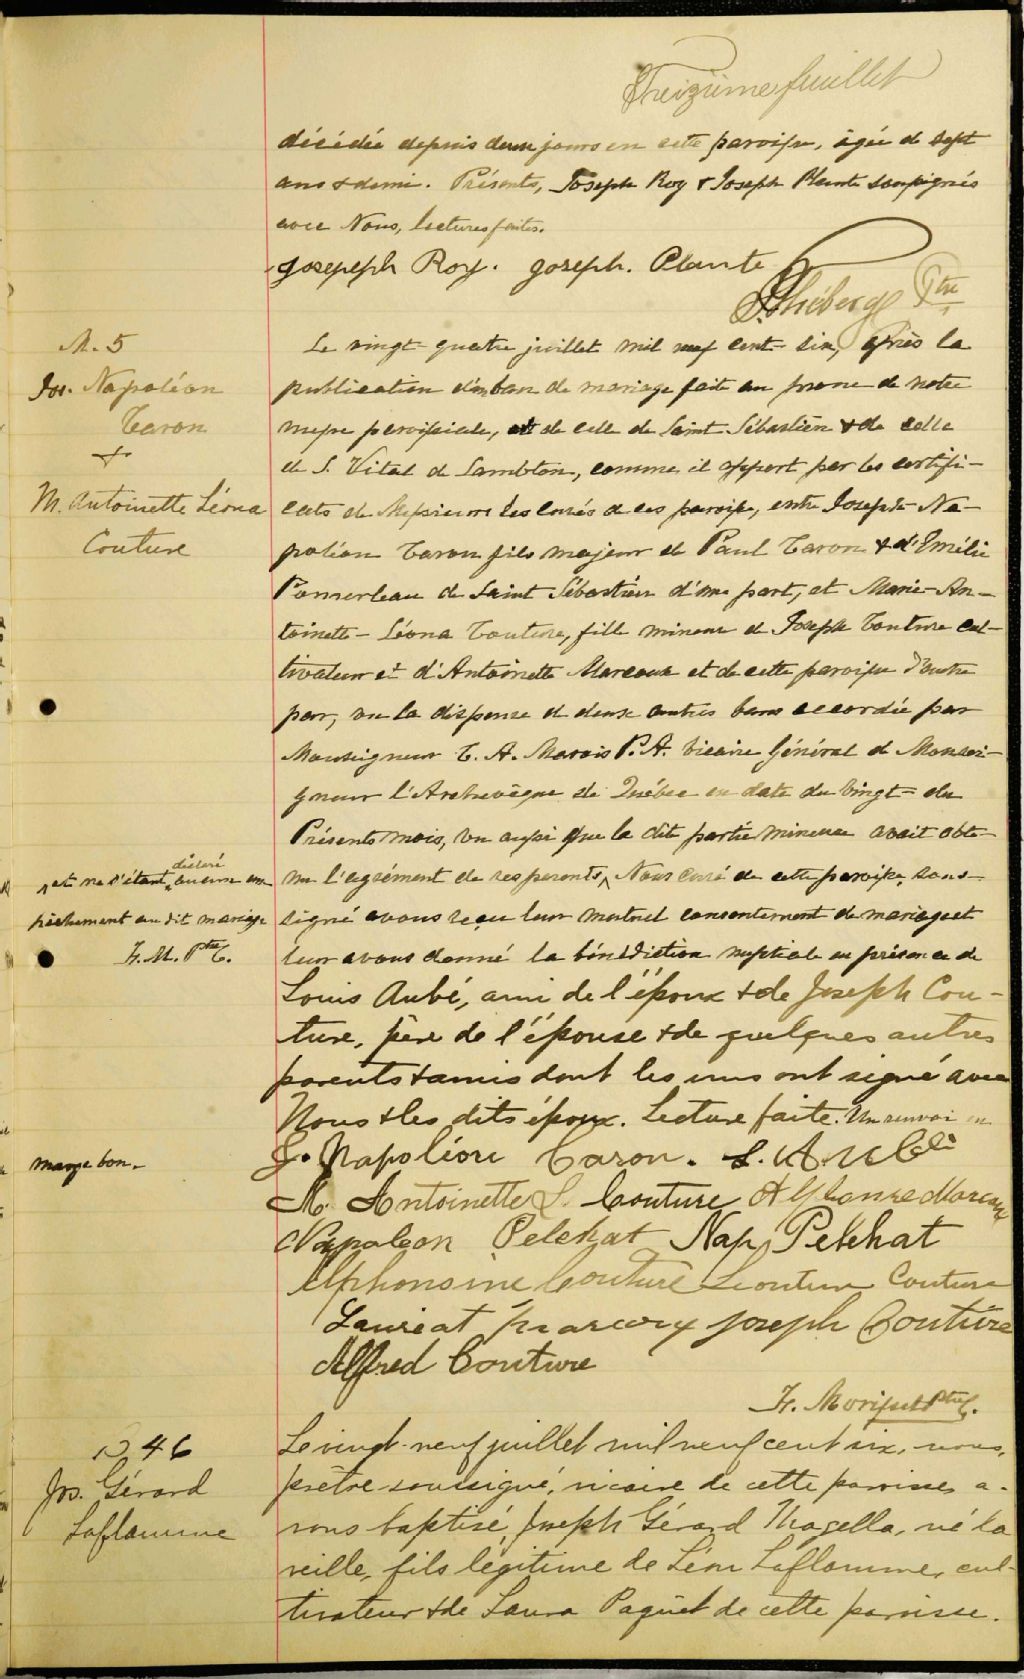 Treizième feuillet
décédée depuis deux jours en cette paroisse, âgée de sept
ans & demi. Présents, Joseph Roy & Joseph Plante soussignés
avec Nous, lectures faites.
Josepeph Roy. Joseph. Plante
Théberge Ptre
M. 5
Jos. Napoléon
Caron
+
M. Antoinette Léona
Couture
Le vingt-quatre juillet mil neuf cent-six, après la
publication d'un ban de mariage faite au prone de notre
messe paroissiale, et de celle de Saint Sébastien & de celle
de S. Vital de Lambton, comme il appert par les certifi-
cats de Messieurs les curés de ces paroisse, entre Joseph-Na-
poléon Caron fils majeur de Paul Caron & d'Emélie
Pomerleau de Saint Sébastien d'une part, et Marie-An-
toinette-Léona Couture, fille mineure de Joseph Couture cul-
tivateur et d'Antoinette Marcoux et de cette paroisse d'autre
par, vu la dispense de deux autres bans accordée par
Monseigneur C. A. Marois P. A. Vicaire Général de Monsei-
gneur l'Archevêque de Québec en date du vingt-du
Présents mois, vu aussi que la dit partie mineure avait obte-
nu l'agrément de ses parents, Nous curé de cette paroisse, sous-
signé avons reçu leur mutuel consentement de mariage et
leur avons donné la bénédiction nuptiale en présence de
Louis Aubé, ami de l'époux & de Joseph Cou-
ture, père de l'épouse & de quelques autres
parents & amis dont les uns ont signé avec
Nous & les dits époux. Lecture faite. Un renvoi en
et ne s'étant déclaré aucun em
pêchement au dit mariage
F. M. Ptre C.
marge bon.
J. Napoléon Caron. L. Aubé
M. Antoinette L. Couture Alphonse Marcoux
Napoleon Pelchat Nap Pelchat
Alphonsine Couture Couture
Lauréat Marcoux Joseph Couture
Alfred Couture
F. Morisset Ptre C.
B 46
Jos. Gérard
Laflamme
Le vingt-neuf juillet mil neuf cent six, nous,
prêtre soussigné, vicaire de cette paroisse, a-
vons baptisé, Joseph Gérard Magella, né la
veille, fils légitime de Léon Laflamme, cul-
tivateur & de Laura Paquet de cette paroisse.